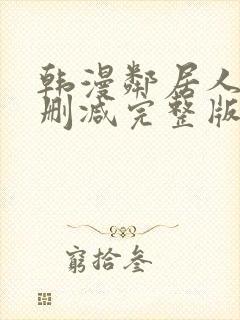 韩漫邻居人
删减完整版
窮拾叁